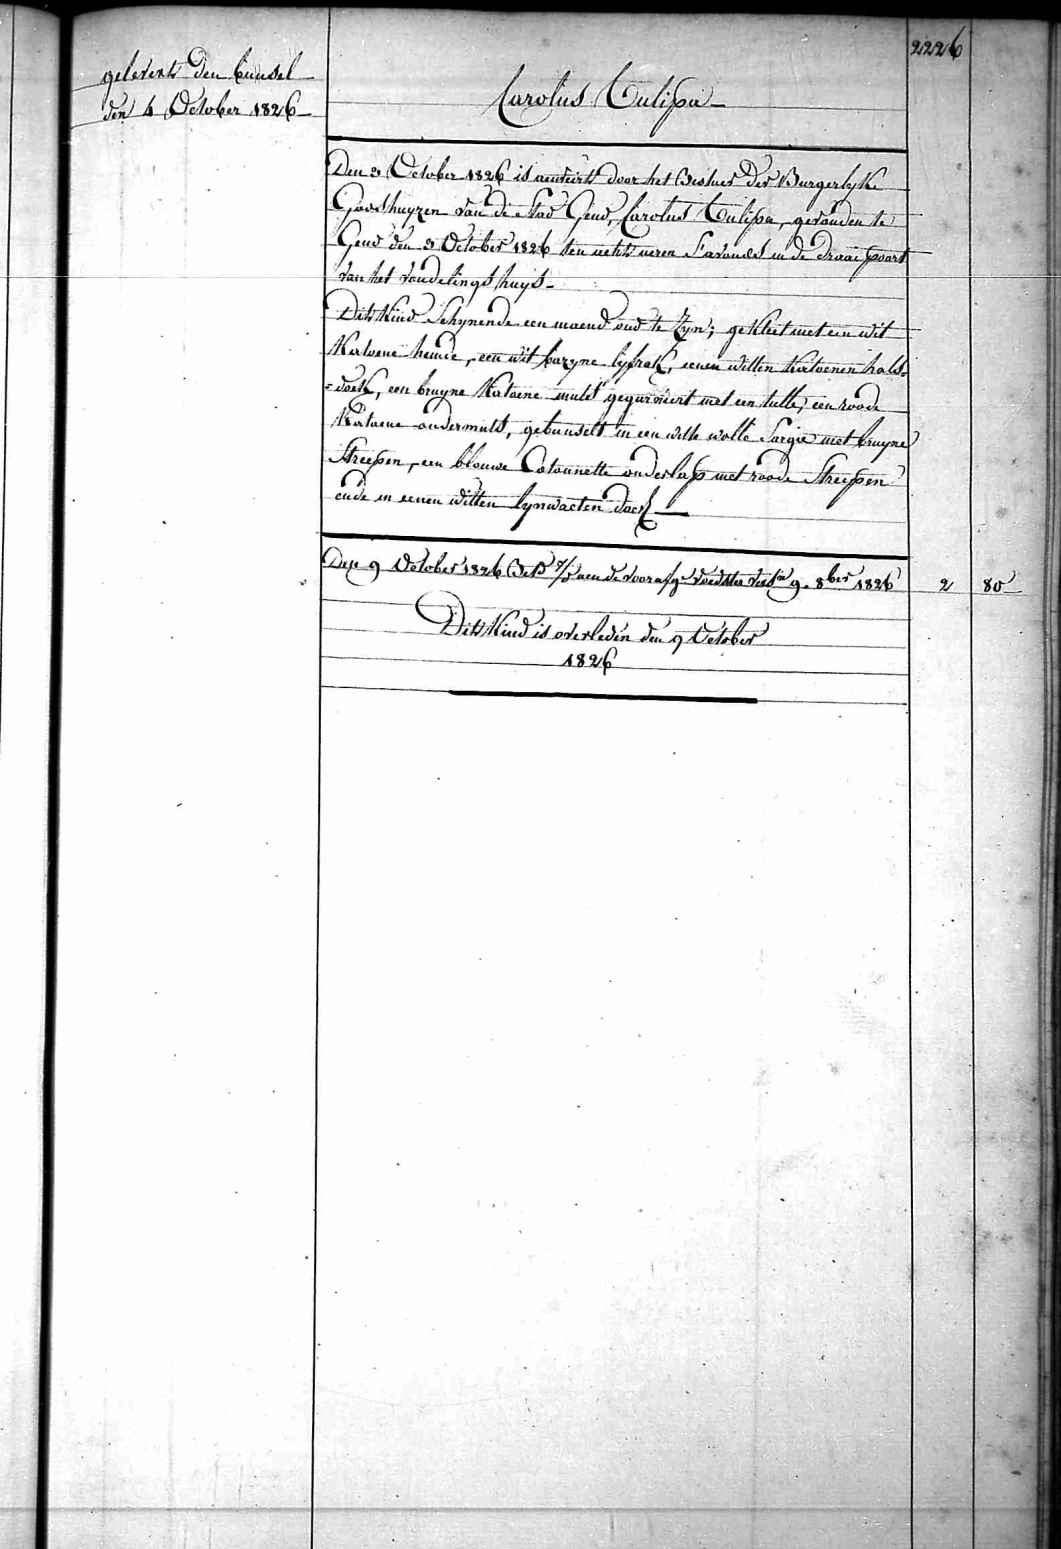 2226
gelevert den bunsel
den 4 October 1826
Carolus Tulipa
Den 3 October 1826 is aenveirt door het Bestuer der Burgerlyke
Godshuyzen van de stad Gend, Carolus Tulipa, gevonden te
Gend den 3 October 1826 ten acht ueren s'avonds in de draaipoort
van het vondelings huys
Dit Kind Schynende een maend oud te Zyn; gekleet met een wit
Katoene hemde, een wit bazyne lyfrok, eenen witten Katoenen hals=
=doek, een bruyne Katoene muts gegarniert met een tulle, een roode
Katoene ondermuts, gebunselt in een witte wolle Sargie met bruyne
Streepen, een blouwe Cotonnette onderlap met roode Streepen
ende in eenen witten lynwaeten doek
Dep 9 October 1826 aen de voorafge voedster 9. 8ber 1826 2 80
Dit Kind is overleden den 9 October
1826